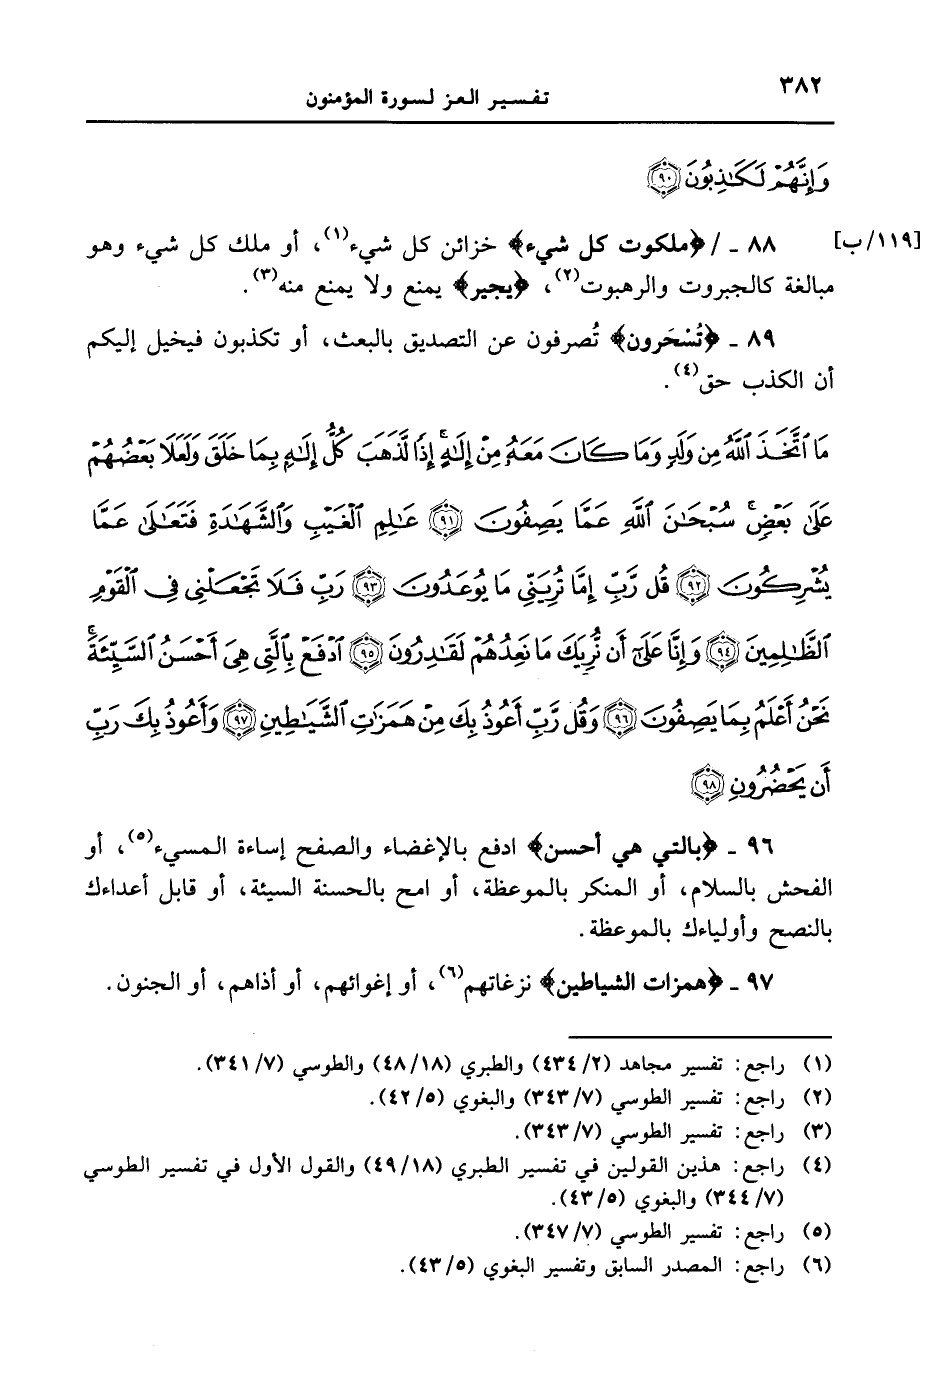 ٣٨٢
تفسير العز لسورة المؤمنون
وَإِنَّهُمْ لَكَٰذِبُونَ ﴿٩٠﴾
[١١٩/ب] ٨٨ ـ / ﴿ملكوت كل شيء﴾ خزائن كل شيء(١)، أو ملك كل شيء وهو
مبالغة كالجبروت والرهبوت(٢)، ﴿يجير﴾ يمنع ولا يمنع منه(٣).
٨٩ ـ ﴿تُسْحَرون﴾ تُصرفون عن التصديق بالبعث، أو تكذبون فيخيل إليكم
أن الكذب حق(٤).
مَا ٱتَّخَذَ ٱللَّهُ مِن وَلَدٍ وَمَا كَانَ مَعَهُۥ مِنْ إِلَٰهٍ ۚ إِذًا لَّذَهَبَ كُلُّ إِلَٰهٍۭ بِمَا خَلَقَ وَلَعَلَا بَعْضُهُمْ
عَلَىٰ بَعْضٍ ۚ سُبْحَٰنَ ٱللَّهِ عَمَّا يَصِفُونَ ﴿٩١﴾ عَٰلِمِ ٱلْغَيْبِ وَٱلشَّهَٰدَةِ فَتَعَٰلَىٰ عَمَّا
يُشْرِكُونَ ﴿٩٢﴾ قُل رَّبِّ إِمَّا تُرِيَنِّي مَا يُوعَدُونَ ﴿٩٣﴾ رَبِّ فَلَا تَجْعَلْنِي فِى ٱلْقَوْمِ
ٱلظَّٰلِمِينَ ﴿٩٤﴾ وَإِنَّا عَلَىٰٓ أَن نُّرِيَكَ مَا نَعِدُهُمْ لَقَٰدِرُونَ ﴿٩٥﴾ ٱدْفَعْ بِٱلَّتِى هِىَ أَحْسَنُ ٱلسَّيِّئَةَ ۚ
نَحْنُ أَعْلَمُ بِمَا يَصِفُونَ ﴿٩٦﴾ وَقُل رَّبِّ أَعُوذُ بِكَ مِنْ هَمَزَٰتِ ٱلشَّيَٰطِينِ ﴿٩٧﴾ وَأَعُوذُ بِكَ رَبِّ
أَن يَحْضُرُونِ ﴿٩٨﴾
٩٦ ـ ﴿بالتي هي أحسن﴾ ادفع بالإغضاء والصفح إساءة المسيء(٥)، أو
الفحش بالسلام، أو المنكر بالموعظة، أو امح بالحسنة السيئة، أو قابل أعداءك
بالنصح وأولياءك بالموعظة.
٩٧ ـ ﴿همزات الشياطين﴾ نزغاتهم(٦)، أو إغوائهم، أو أذاهم، أو الجنون.
(١) راجع: تفسير مجاهد (٤٣٤/٢) والطبري (٤٨/١٨) والطوسي (٣٤١/٧).
(٢) راجع: تفسير الطوسي (٣٤٣/٧) والبغوي (٤٢/٥).
(٣) راجع: تفسير الطوسي (٣٤٣/٧).
(٤) راجع: هذين القولين في تفسير الطبري (٤٩/١٨) والقول الأول في تفسير الطوسي
(٣٤٤/٧) والبغوي (٤٣/٥).
(٥) راجع: تفسير الطوسي (٣٤٧/٧).
(٦) راجع: المصدر السابق وتفسير البغوي (٤٣/٥).